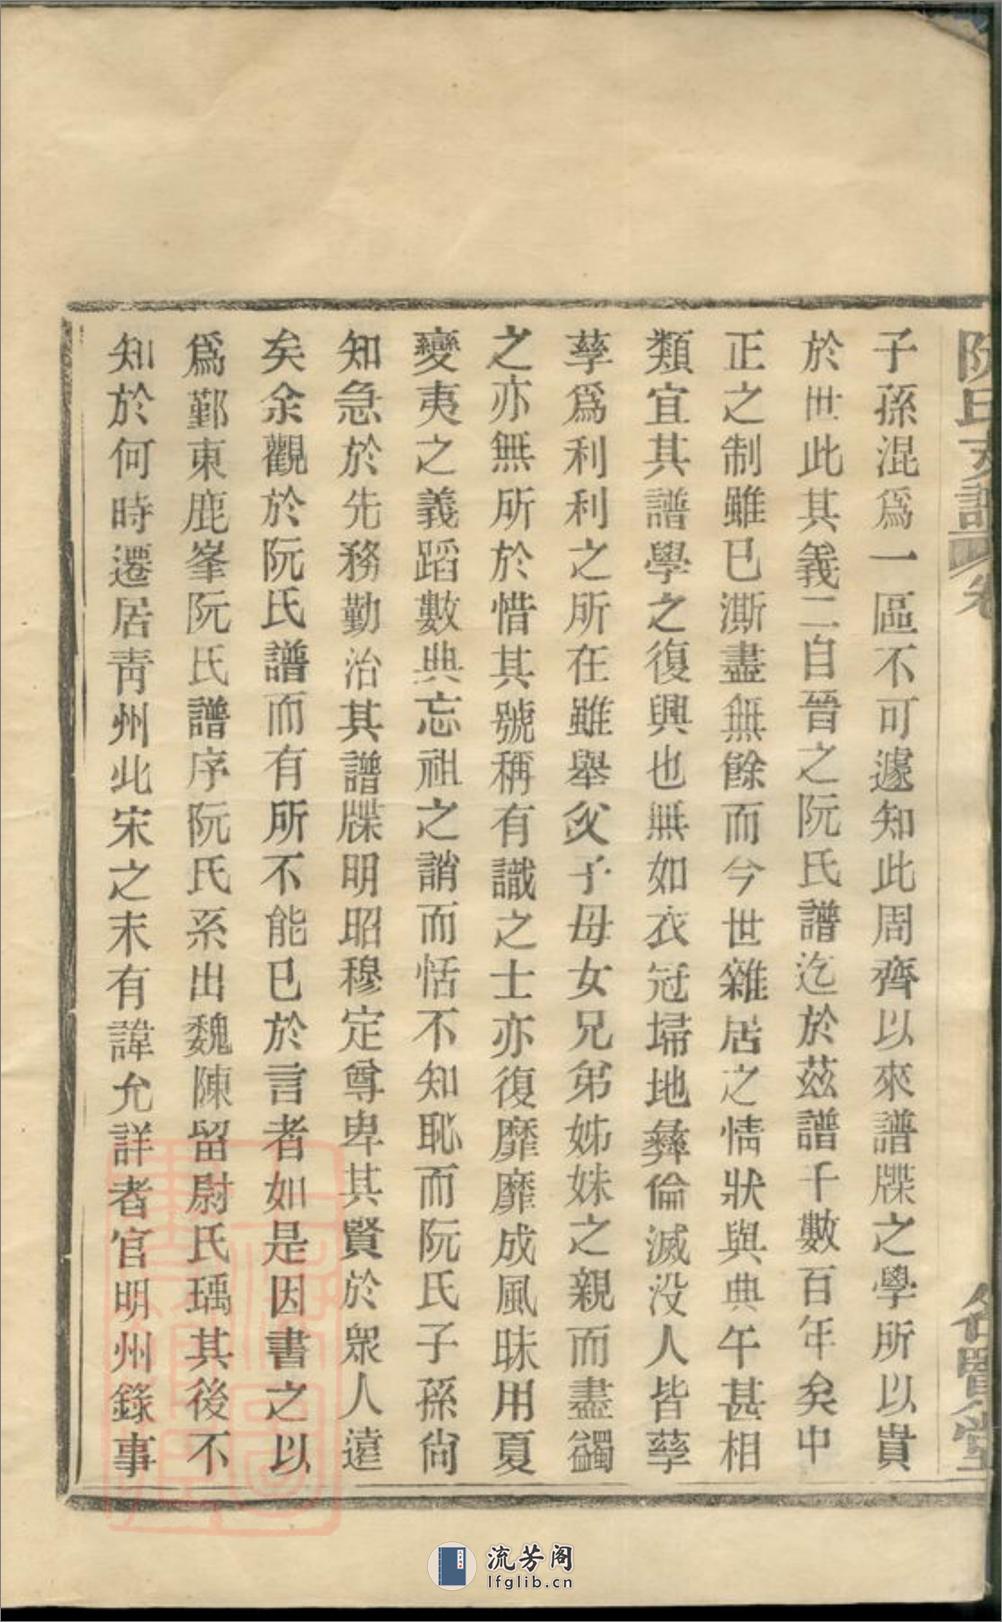 阮氏支譜 卷
名賢堂
子孫混爲一區不可遽知此周齊以來譜牒之學所以貴
於世此其義二自晉之阮氏譜迄於茲譜千數百年矣中
正之制雖已澌盡無餘而今世雜居之情狀與典午甚相
類宜其譜學之復興也無如衣冠埽地彝倫滅没人皆孳
孳爲利利之所在雖舉父子母女兄弟姊妹之親而盡蠲
之亦無所於惜其號稱有識之士亦復靡靡成風昧用夏
變夷之義蹈數典忘祖之誚而恬不知恥而阮氏子孫尙
知急於先務勤治其譜牒明昭穆定尊卑其賢於眾人遠
矣余觀於阮氏譜而有所不能已於言者如是因書之以
爲鄞東鹿峯阮氏譜序阮氏系出魏陳留尉氏瑀其後不
知於何時遷居靑州此宋之末有諱允詳者官明州錄事
流芳阁
lfglib.cn